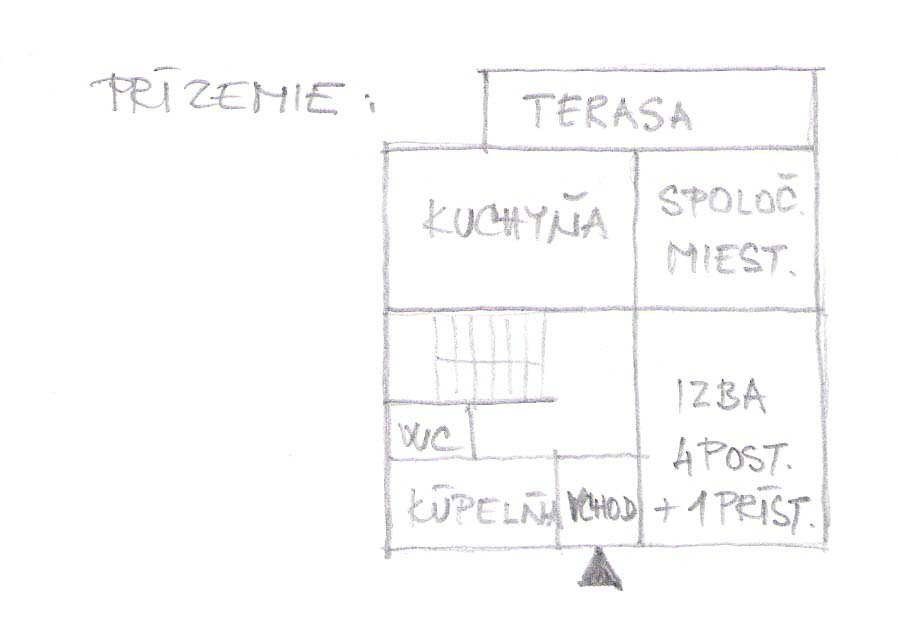 PRÍZEMIE:
TERASA
KUCHYŇA
SPOLOČ.
MIEST.
IZBA
4 POST.
+ 1 PRÍST.
WC
KÚPELŇA
VCHOD